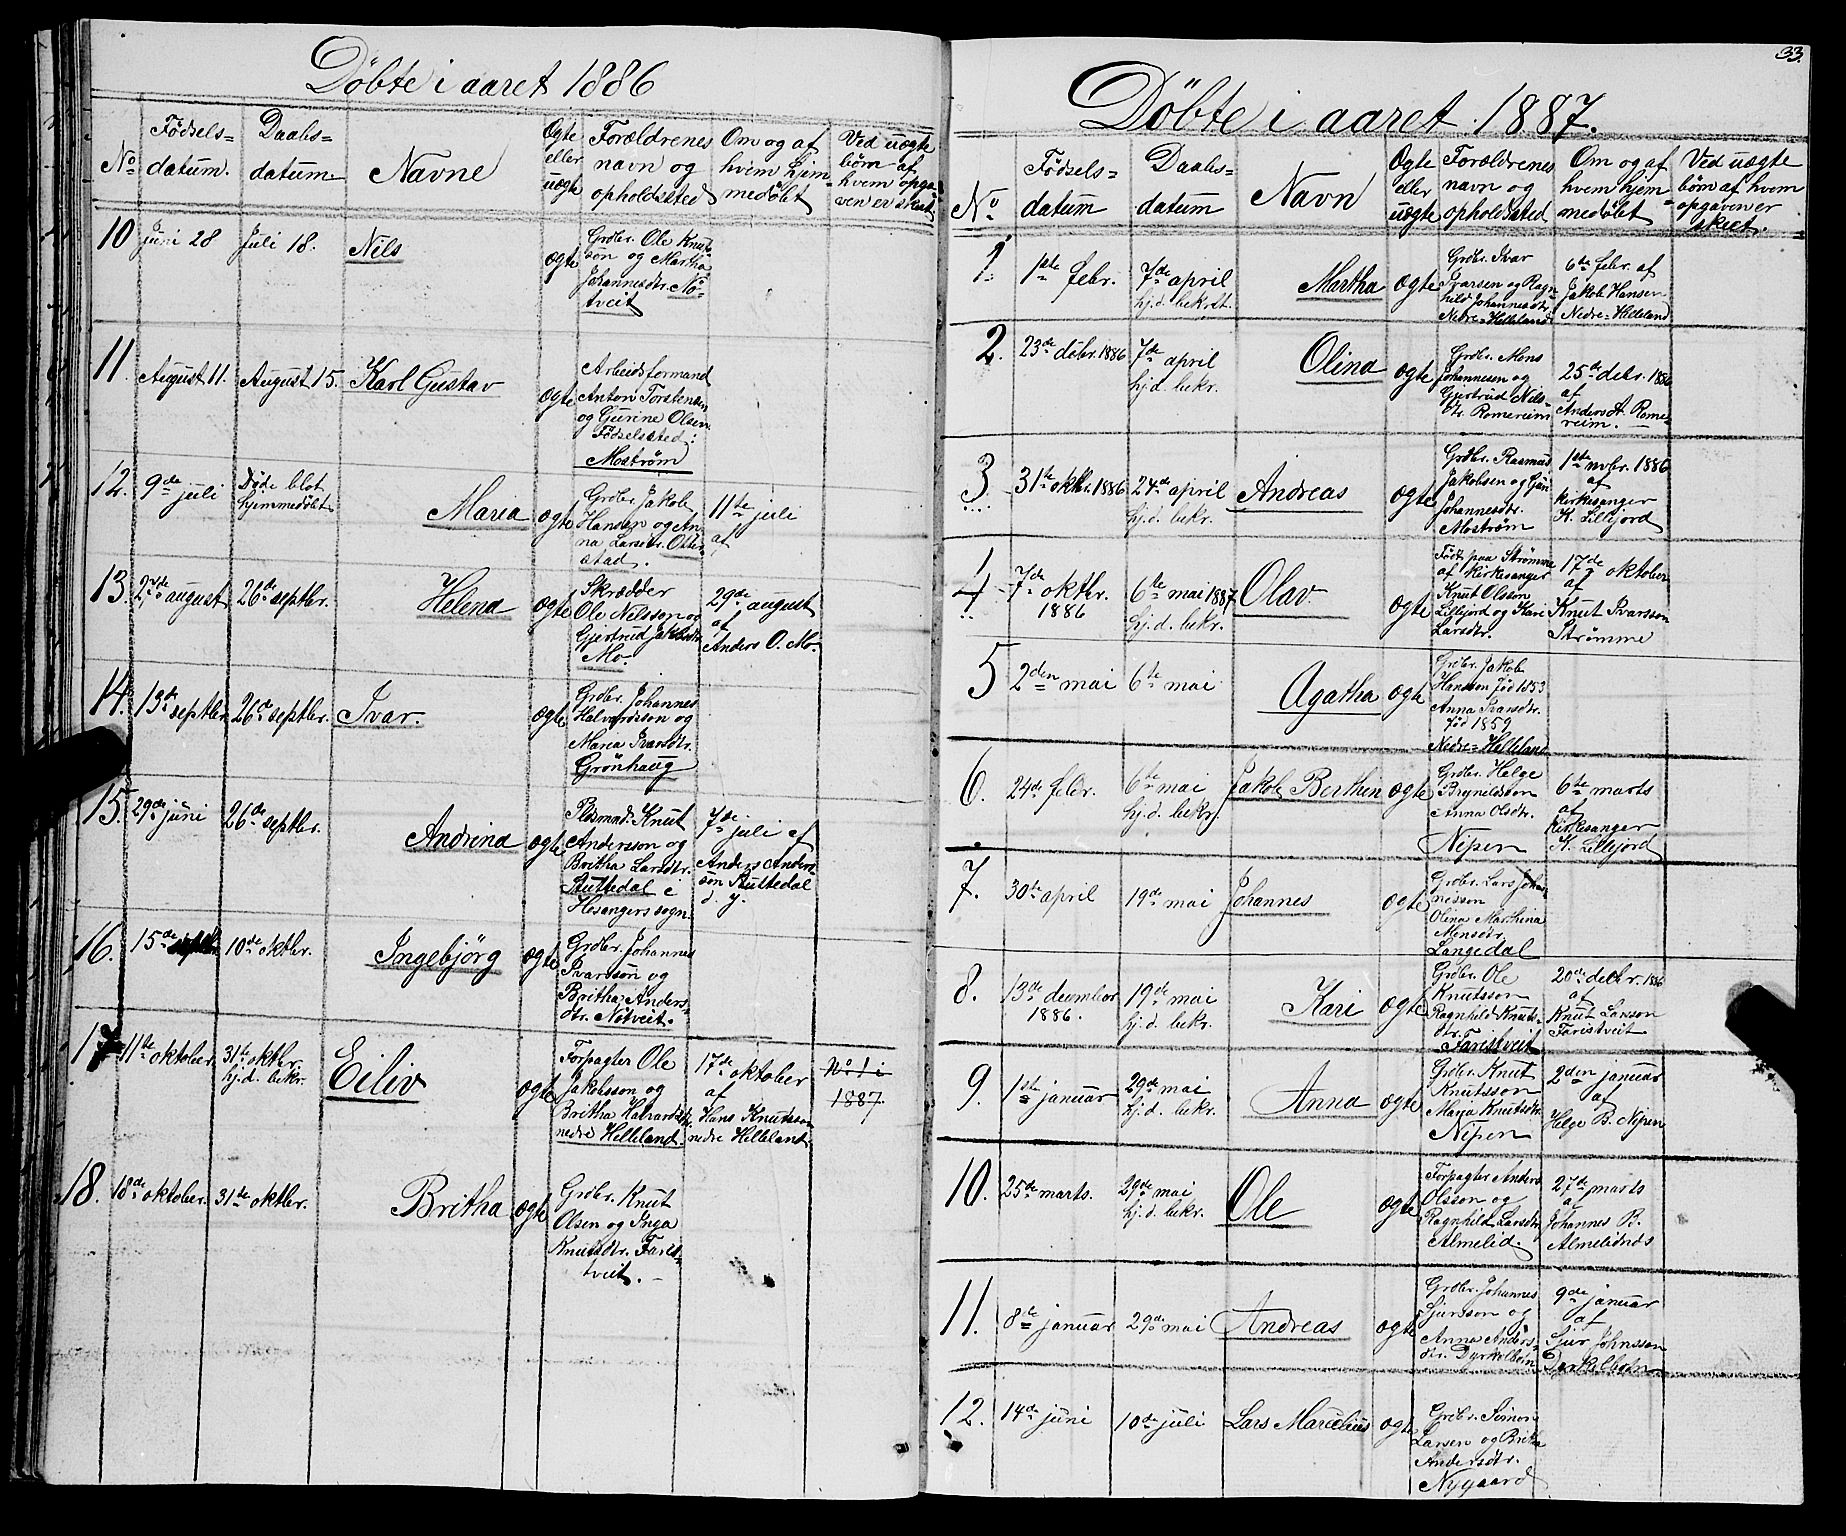 Döbte i aaret 1886
No
Födsels=
datum.
Daabs=
datum
Navne
Ogte
eller
uøgte
Forældrenes
navn og
opholdssted
Om og af
hvem hjem=
medøbt
Ved uøgte
børn af
hvem opga=
ven er skeet
10
Juni 28
Juli 18.
Nils
øgte
Grdbr. Ole Knut=
son og Martha
Johannesdtr. Nö=
tveit
11.
August 11.
August 15.
Karl Gustav
øgte
Arbeidsformand
Anton Torstensen
og Gurine Olsen.
Födselssted:
Moström
12.
9de juli
Døde blot
hjemmedøbt
Maria
øgte
Grdbr. Jakob
Hansen og An=
na Larsdtr. Otter=
stad.
11te juli
af
13.
27de august
26de septbr.
Helena
øgte
Skrædder
Ole Nilsson og
Gjertrud Jakobsdtr.
Mo.
29de august
af
Anders O. Mo.
14.
13de septbr.
26de septbr.
Ivar.
øgte
Grdbr. Johannes
Halvardsson og
Maria Ivarsdtr.
Grönhaug
15.
29de juni
26de septbr.
Andrina
øgte
Pldsmnd. Knut
Andersson og
Britha Larsdtr.
Stuttedal i
Hosangers sogn
7de juli af
Anders Anders=
son Stuttedal
d. y.
16.
15de septbr.
10de oktbr.
Ingebjörg
øgte
Grdbr. Johannes
Ivarsson og
Britha Anders=
dtr. Nötveit.
17
11te oktober.
31te oktbr.
hj.d. bekr.
Eiliv
øgte
Forpagter Ole
Jakobsson og
Britha Halvardsdtr.
nedre Helleland.
17de oktober
af
Hans Knutsson
nedre Helleland
No 1 i
1887.
18.
18de oktober.
31te oktbr.
Britha
øgte
Grdbr. Knut
Olsen og Inga
Knutsdtr. Farist=
tveit.
33.
Döbte i aaret 1887.
No
Födsels=
datum
Daabs=
datum
Navn
Ogte
eller
uøgte
Forældrenes
navn og
opholdssted
Om og af
hvem hjem=
medøbt
Ved uøgte
børn af hvem
opgaven er
skeet.
1.
1ste febr.
7de april
hj.d. bekret.
Martha
øgte
Grdbr. Ivar
Ivarsen og Ragn=
hild Johannesdtr.
Nedre=Helleland
6te febr. af
Jakob Hansen
Nedre=Helleland
2.
23de debr. 1886
7de april
hj.d. bekr.
Olina
øgte
Grdbr. Mons
Johannesen og
Gjertrud Nils=
dtr. Romereim
25de debr. 1886
af
Anders A. Rome=
reim.
3
31te oktbr. 1886
24de april
hj.d. bekr.
Andreas
øgte
Grdbr. Rasmus
Jakobsen og Guri
Johannesdtr.
Moström
1ste nvbr. 1886
af
kirkesanger
K. Lillejord
4
7de oktbr.
1886
6te mai 1887
hj.d. bekr.
Olav.
øgte
Født paa Strømme
af kirkesanger
Knut Olsson
Lillejord og Kari
Larsdtr.
17de oktober
af
Knut Ivarsson
Strømme
5
2den mai
6te mai
Agatha
øgte
Grdbr. Jakob
Hansson fød 1853
Anna Ivarsdtr.
fød 1859
Nedre=Helleland
6.
24de febr.
6te mai
hj.d. bekr.
Jakob Berthin
øgte
Grdbr. Helge
Brynildsson
Anna Olsdtr.
Nipen
6te marts
af
kirkesanger
K. Lillejord
7.
30te april
19de mai
Johannes
øgte
Grdbr. Lars Johan=
nesson
Olina Marthina
Monsdtr.
Langedal
8.
13de december
1886.
19de mai
hj.d. bekr.
Kari
øgte
Grdbr. Ole
Knutsson
Ragnhild Knuts=
dtr.
Faristveit
20de decbr. 1886
af
Knut Larsson
Faristveit
9.
1ste januar
29de mai
hj.d. bekr.
Anna
øgte
Grdbr. Knut
Knutsson
Marja Knutsdtr.
Nipen
2den januar
af
Helge B. Nipen
10.
25de marts.
29de mai
hj.d. bekr.
Ole
øgte
Forpagter Anders
Olsson og
Ragnhild Larsdtr.
Almelid.
27de marts
af
Johannes B.
Almelidnøs
11.
8de januar
29de mai
Andreas
øgte
Grdbr. Johannes
Sjursson og
Anna Anders=
dtr. Dyrkolbotn
9de januar
af
Sjur Johnsson
Dyrkolbotn
12.
14de juni
10de juli
Lars Marselius
øgte
Grdbr. Simon
Larsen og Britha
Andersdtr.
Nygaard